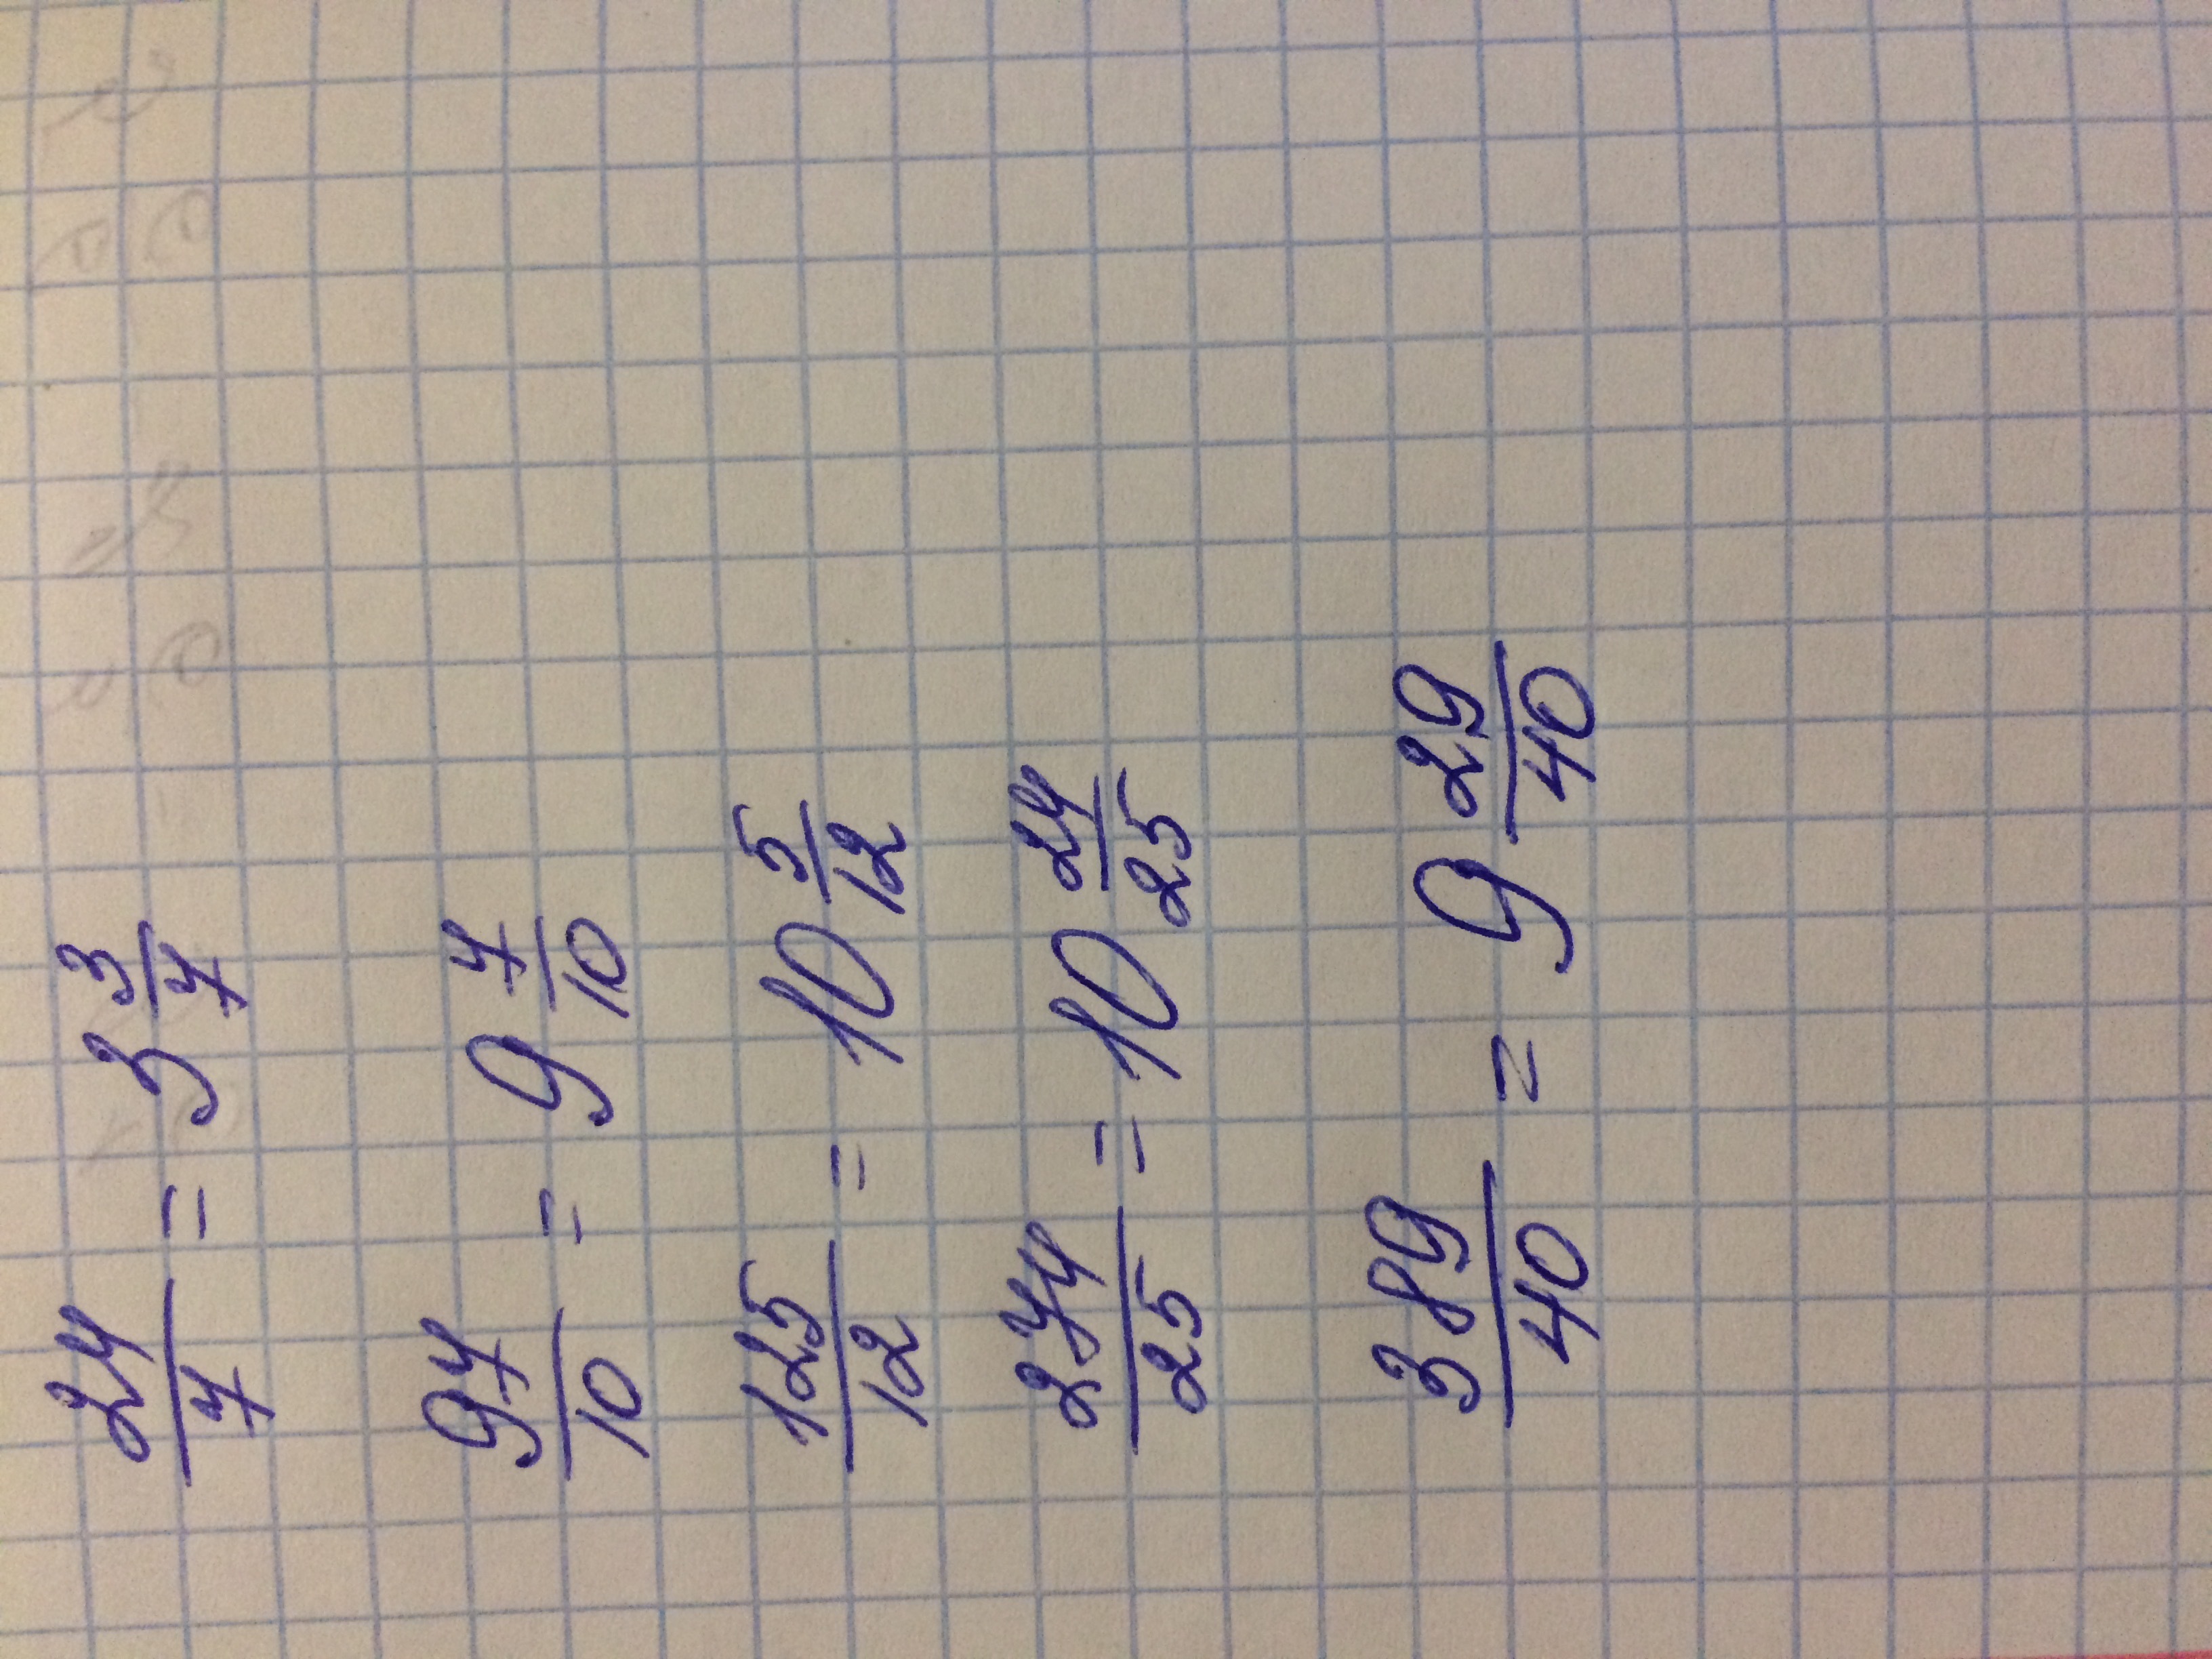 24/7 = 3 3/7
97/10 = 9 7/10
125/12 = 10 5/12
274/25 = 10 24/25
389/40 = 9 29/40